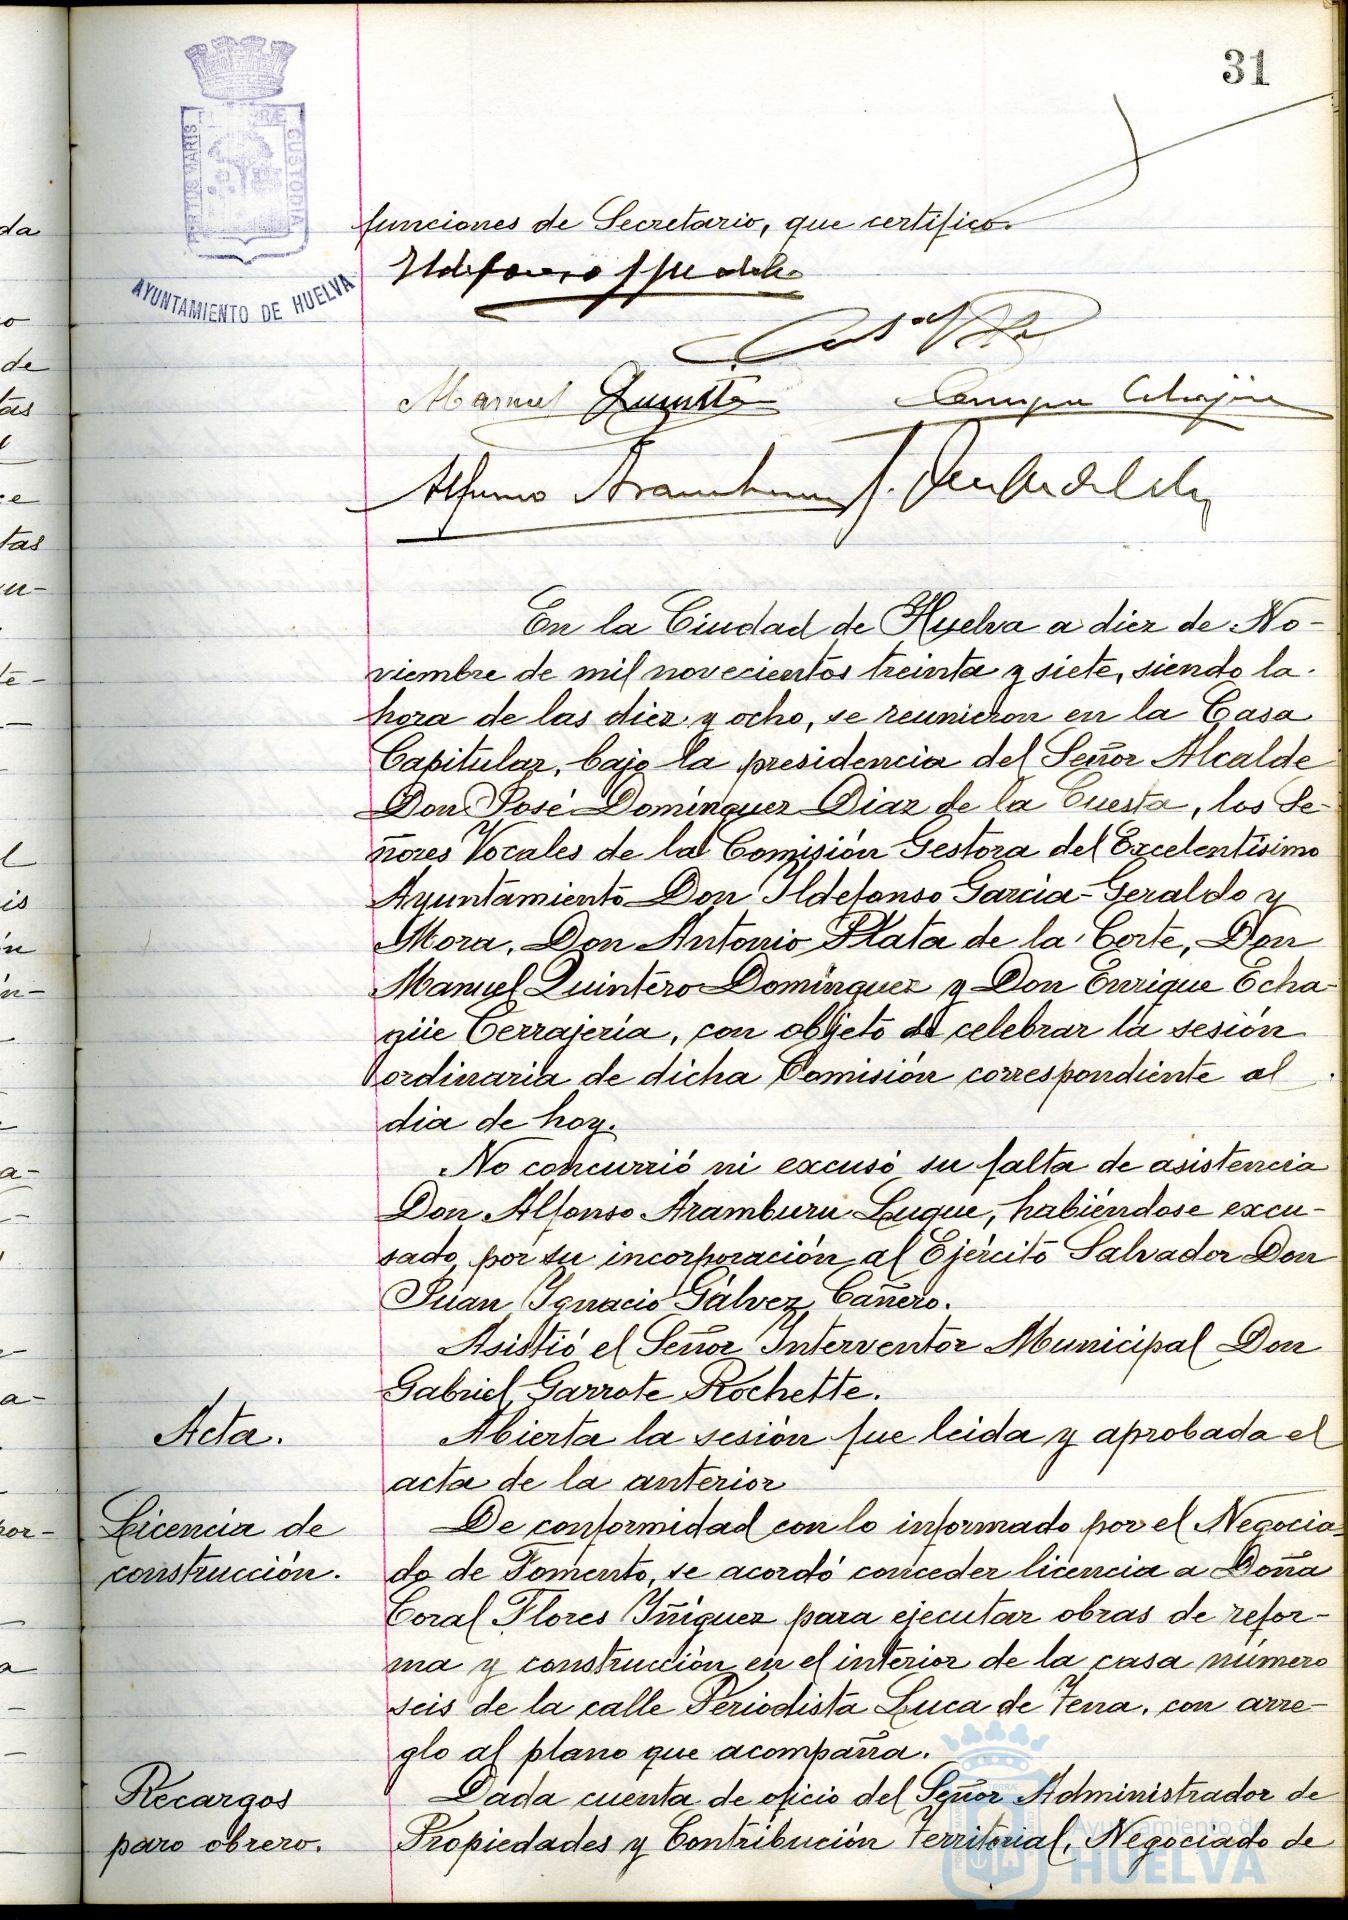 31
PORTUS MARIS
CUSTODIA
AYUNTAMIENTO DE HUELVA
funciones de Secretario, que certifico.
Manuel Quintero
Alfonso Aramburu
En la Ciudad de Huelva a diez de No-
viembre de mil novecientos treinta y siete, siendo la
hora de las diez y ocho, se reunieron en la Casa
Capitular, bajo la presidencia del Señor Alcalde
Don José Domínguez Diaz de la Cuesta, los Se-
ñores Vocales de la Comisión Gestora del Excelentísimo
Ayuntamiento Don Ildefonso García-Geraldo y
Mora, Don Antonio Plata de la Corte, Don
Manuel Quintero Domínguez y Don Enrique Echa-
güe Cerrajería, con objeto de celebrar la sesión
ordinaria de dicha Comisión correspondiente al
dia de hoy.
No concurrió ni excusó su falta de asistencia
Don Alfonso Aramburu Luque, habiéndose excu-
sado, por su incorporación al Ejército Salvador Don
Juan Ignacio Gálvez Cañero.
Asistió el Señor Interventor Municipal Don
Gabriel Garrote Rochette.
Acta.
Abierta la sesión fue leida y aprobada el
acta de la anterior
Licencia de
construcción.
De conformidad con lo informado por el Negocia-
do de Fomento, se acordó conceder licencia a Doña
Coral Flores Yñiguez para ejecutar obras de refor-
ma y construcción en el interior de la casa número
seis de la calle Periodista Luca de Tena, con arre-
glo al plano que acompaña.
Recargos
paro obrero.
Dada cuenta de oficio del Señor Administrador de
Propiedades y Contribución Territorial, Negociado de
Ayuntamiento de
HUELVA